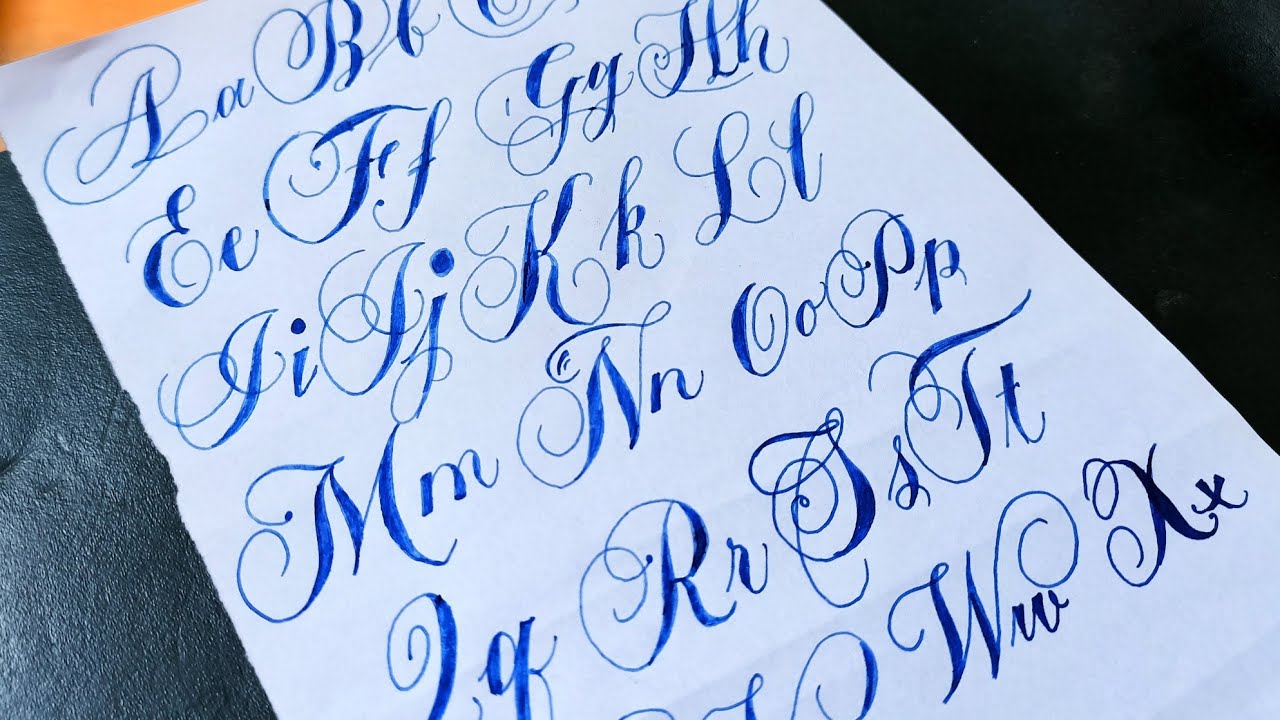 Aa Bb
Ee Ff Gg Hh
Ii Jj Kk Ll
Mm Nn Oo Pp
Qq Rr Ss Tt
Ww Xx